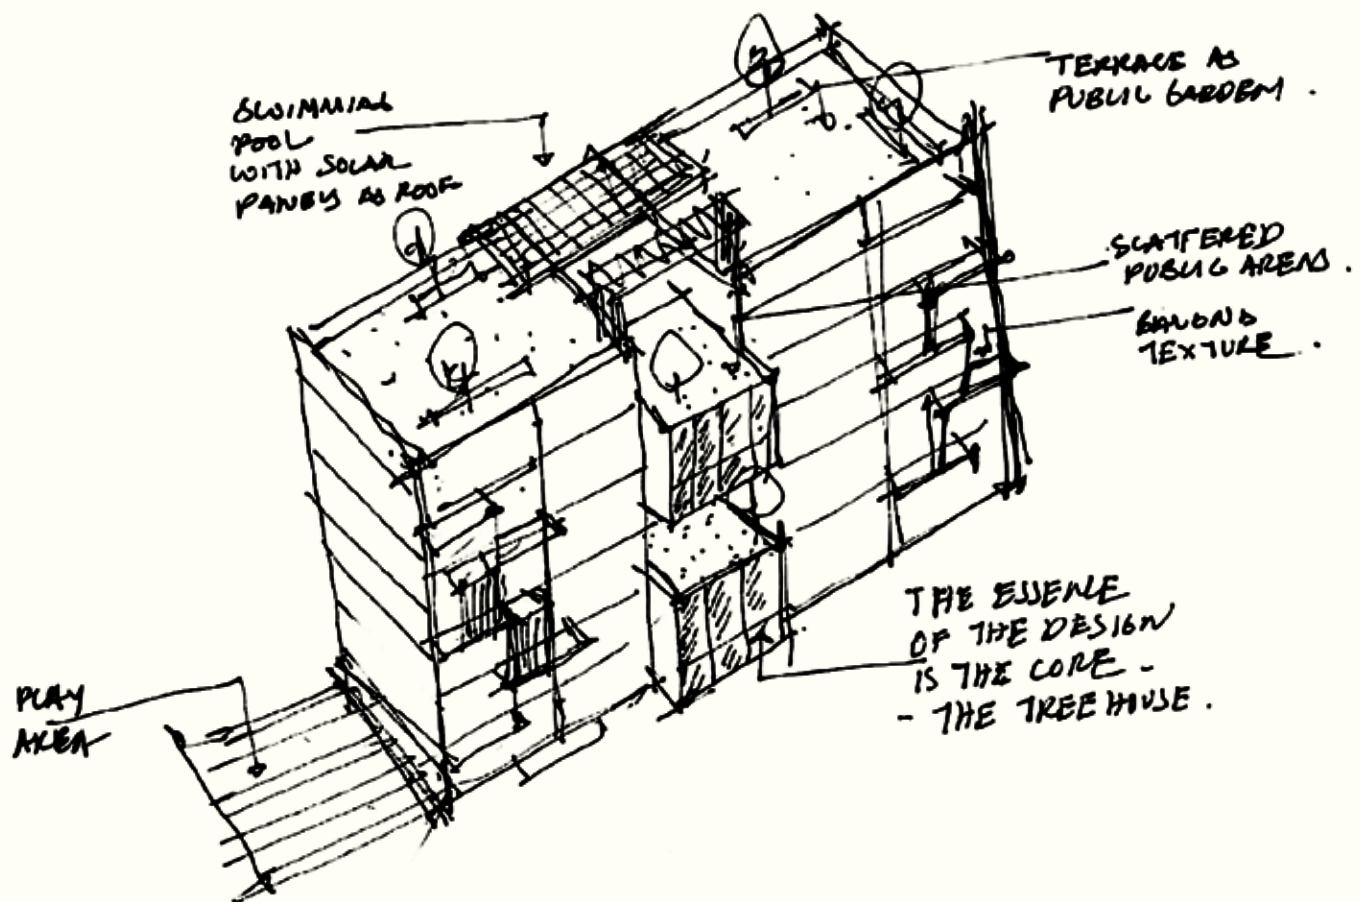 SWIMMING
POOL
WITH SOLAR
PANELS AS ROOF
TERRACE AS
PUBLIC GARDEN .
SCATTERED
PUBLIC AREAS .
TEXTURE .
THE ESSENCE
OF THE DESIGN
IS THE CORE -
- THE TREEHOUSE .
PLAY
AREA